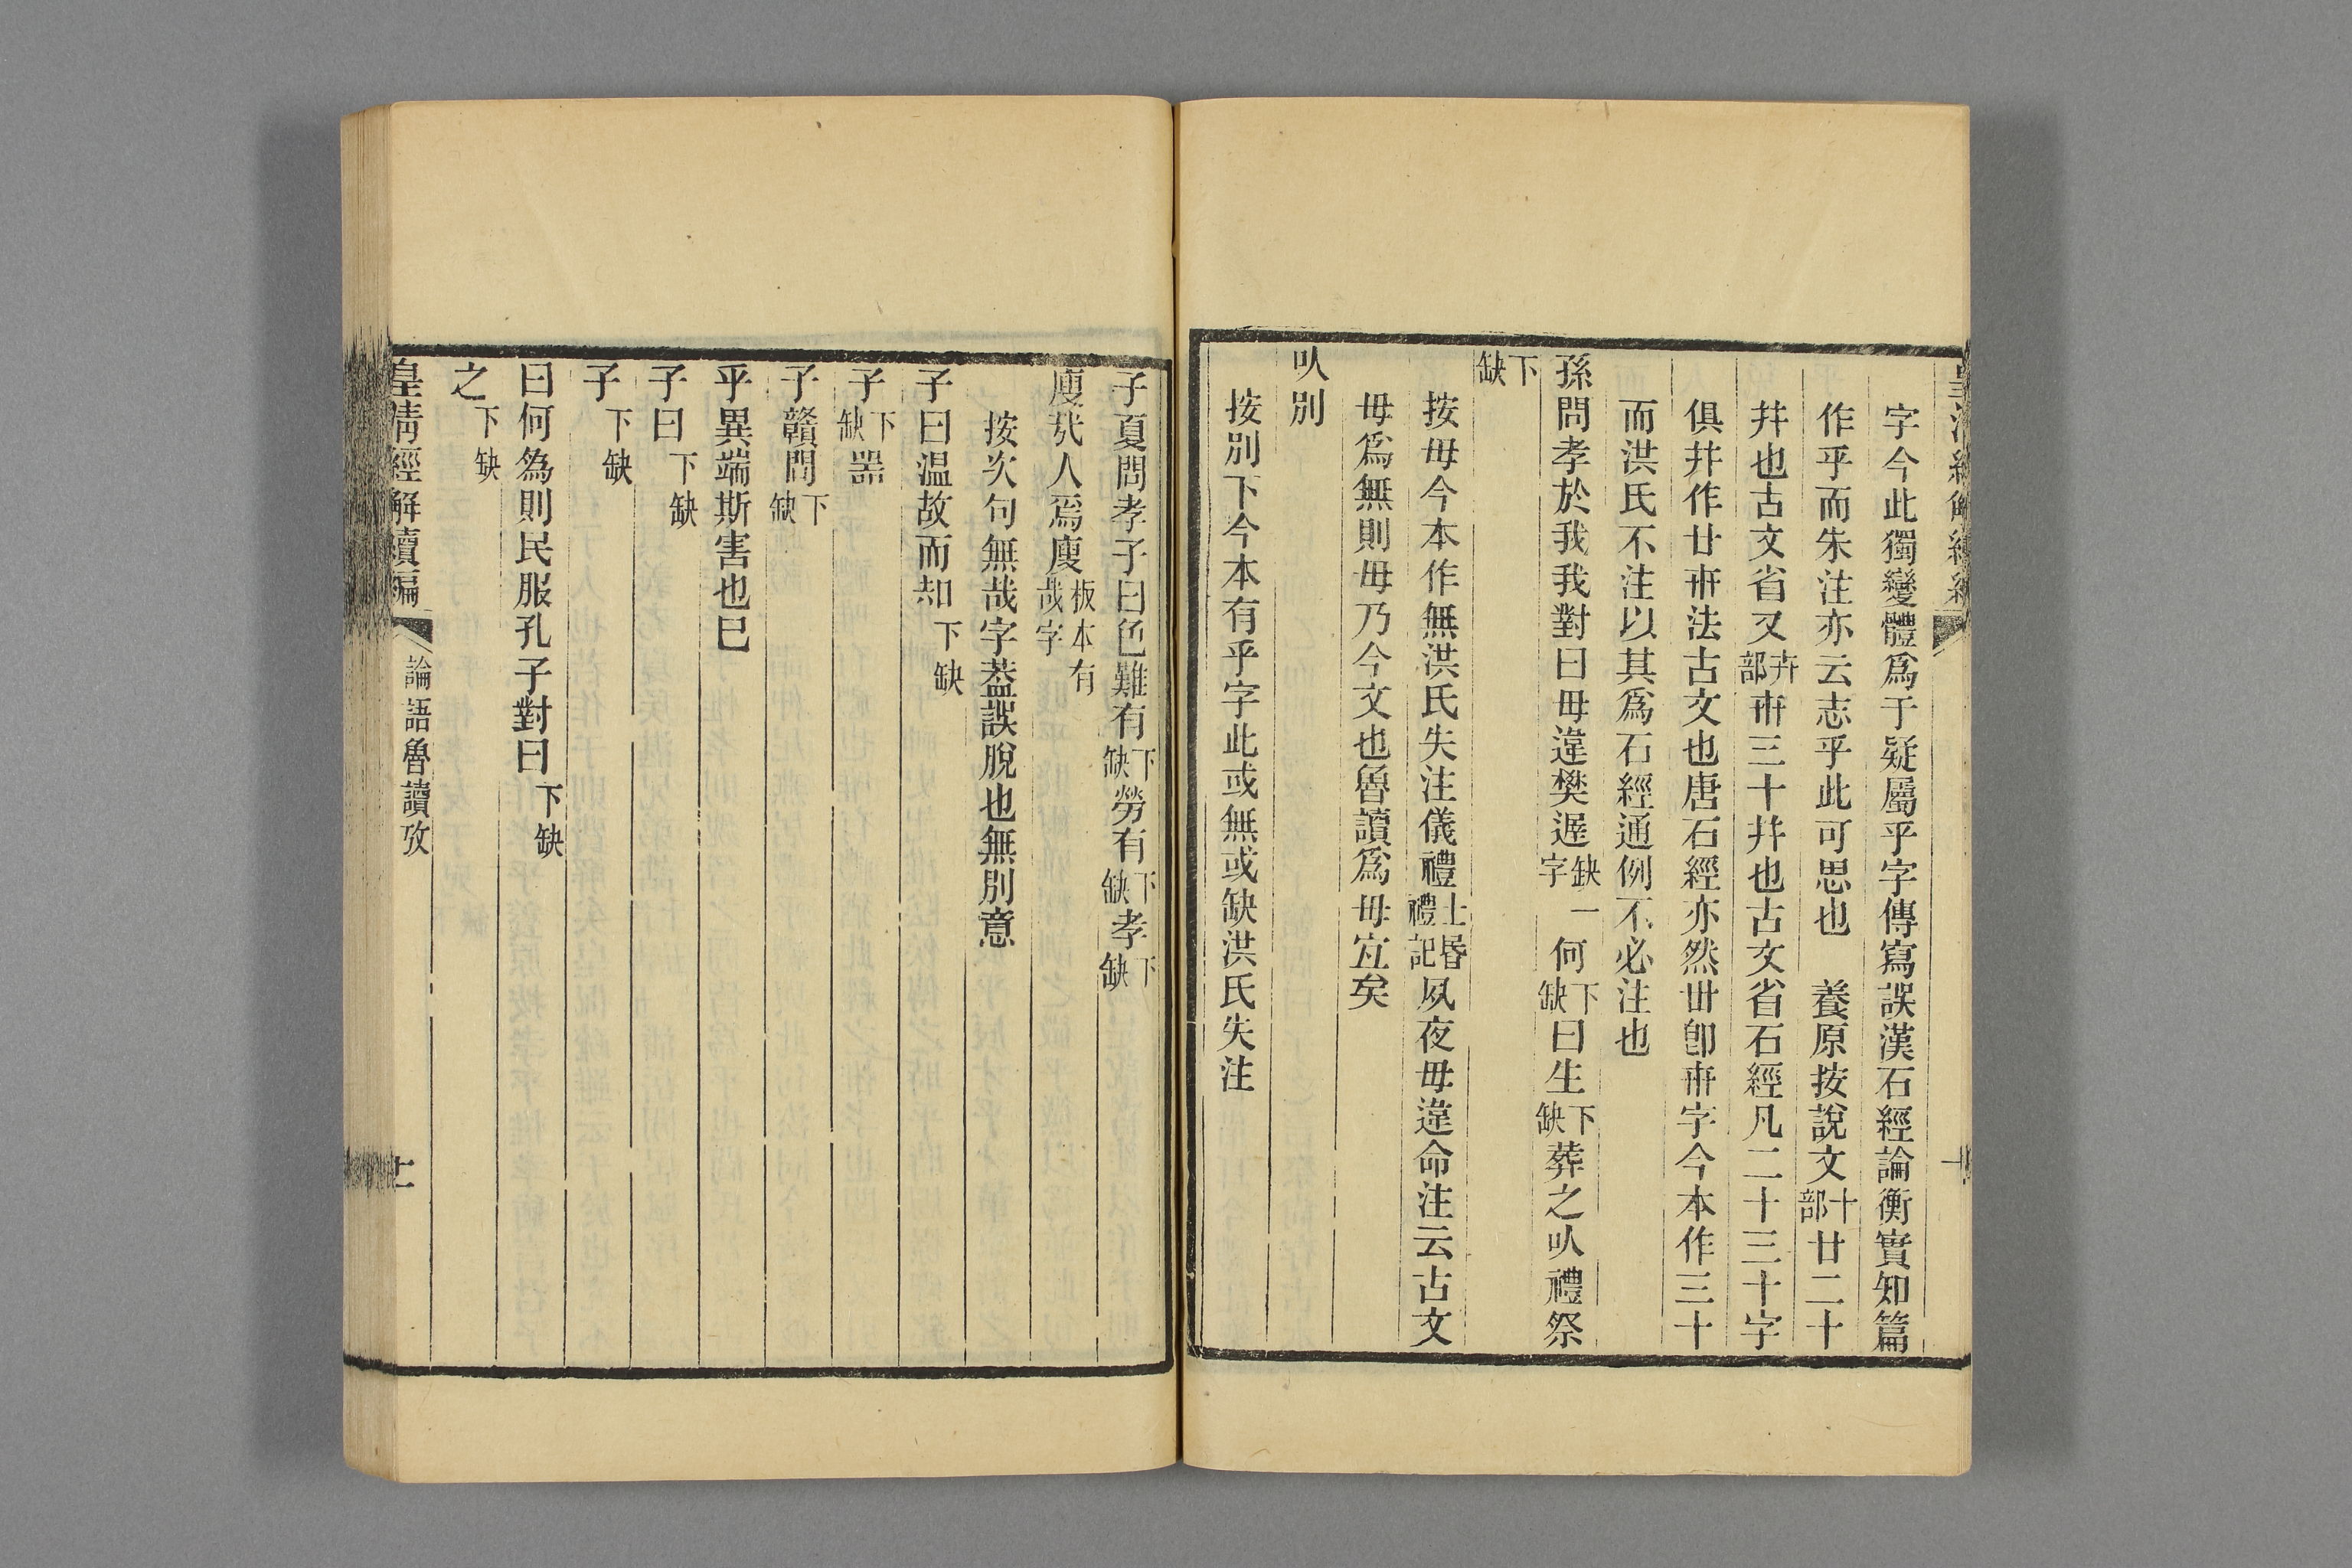 字今此獨變體爲于疑屬乎字傳寫誤漢石經論衡實知篇
作乎而朱注亦云志乎此可思也 養原按說文十部廿二十
幷也古文省又卉部卌三十幷也古文省石經凡二十三十字
俱幷作廿卌法古文也唐石經亦然丗卽卌字今本作三十
而洪氏不注以其爲石經通例不必注也
孫問孝於我我對曰毋違樊遲缺一字何下缺曰生下缺葬之㕥禮祭
下缺
按毋今本作無洪氏失注儀禮士昬禮記夙夜毋違命注云古文
毋爲無則毋乃今文也魯讀爲毋宐矣
㕥別
按別下今本有乎字此或無或缺洪氏失注
子夏問孝子曰色難有下缺勞有下缺孝下缺
廋㢤人焉廋板本有哉字
按次句無哉字葢誤脫也無別意
子曰温故而知下缺
子下缺噐
子贛問下缺
乎異端斯害也已
子曰下缺
子下缺
曰何爲則民服孔子對曰下缺
之下缺
皇清經解續編 論語魯讀攷